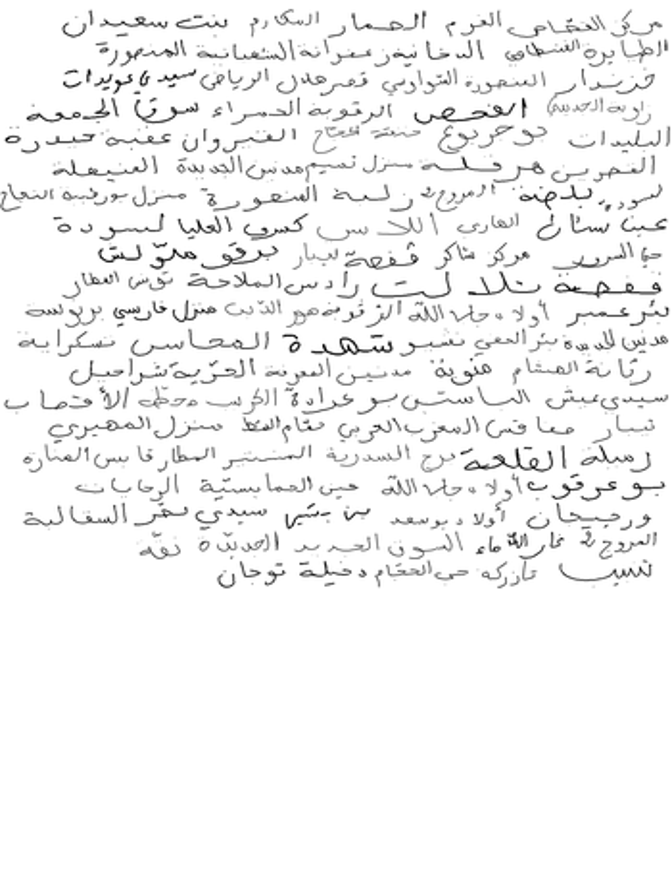 مركز الفحّاص القرم الحمار المكارم بنت سعيدان
الطبابرة الدخانية زعفرانة الشعبانية المنصورة
خزندار المنصورة التواوتي قصر هلال الرياض سيدي عويدات
زاوية الحدية الفحص الرقوبة الحمراء سوق الجمعة
البليدات بو حربوع القيروان عقبة حيدرة
القصرين هرقلة منزل تميم مدنين الجديدة
بلدية المروج زلبة المنصورة منزل بورقيبة النجاح
كسرى العليا لسودة
حي السرور مركز شاكر قفصة تيبار برقو ملّولش
قفصة تلالت رادس الملاحة تونس العطار
بئر عمير أولاد جاب الله الزقوقة هبر الذيب منزل فارسي بربوسة
مدنين الجديدة تبئر الحفي نشير شهدة المحاسن تسكراية
رتّانة الهشام منوبة مدنين المعرفة الحرّية شراحيل
سيدي عيش الباستين بوعرادة الكريب الأقصاب
تيبار معا فس المغرب العربي منزل المهيري
رملة القلعة برج السدرية المنستير المطار قابس المنارة
بوعرقوب أولاد جاب الله عين الحمايسية الرحابات
ورجيجان أولاد بوسعد بن بشير سيدي نصر السفالية
المروج السوق الجديد الحديثة نفّة
تازركة حي الختام دخيلة توجان